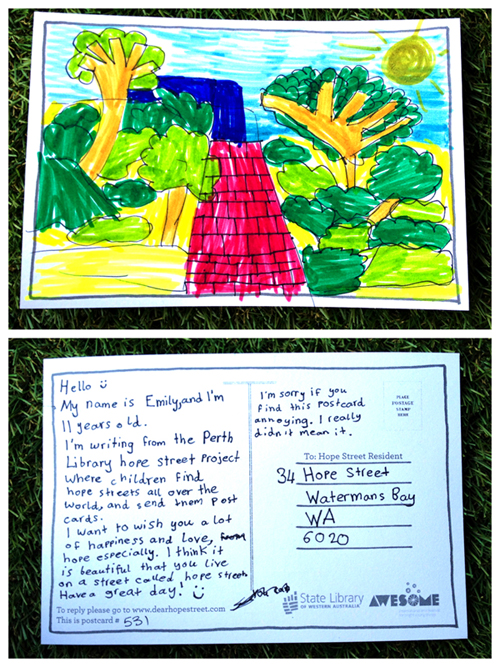 Hello
My name is Emily, and I'm
11 years old.
I'm writing from the Perth
Library hope street Project
where children find
hope streets all over the
world, and send them post
cards.
I want to wish you a lot
of happiness and love,
hope especially. I think it
is beautiful that you live
on a street called hope street.
Have a great day!
To reply please go to www.dearhopestreet.com
This is postcard # 531
I'm sorry if you
find this postcard
annoying. I really
didn't mean it.
PLACE
POSTAGE
STAMP
HERE
To: Hope Street Resident
34 Hope Street
Watermans Bay
WA
6020
State Library
OF WESTERN AUSTRALIA
AWESOME